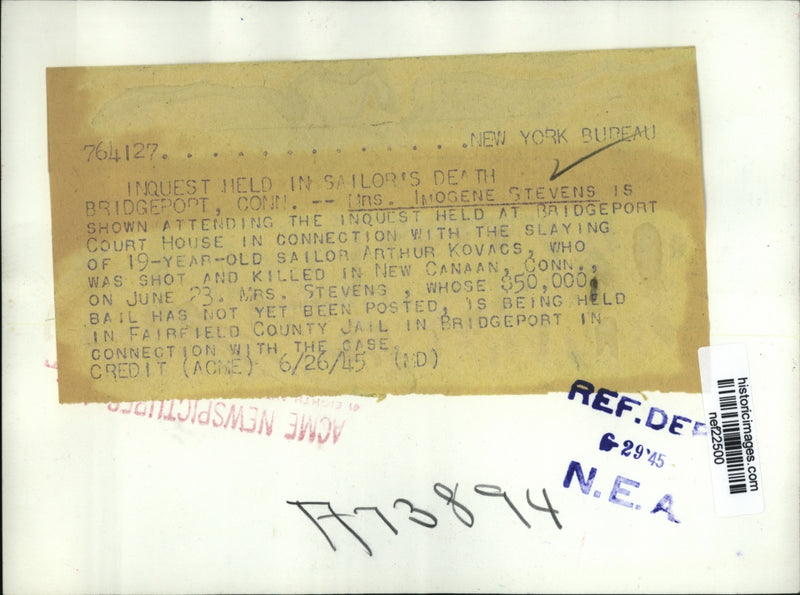 764127. . . . . . . . . . . . . . .NEW YORK BUREAU
INQUEST HELD IN SAILOR'S DEATH
BRIDGEPORT, CONN. -- MRS. IMOGENE STEVENS IS
SHOWN ATTENDING THE INQUEST HELD AT BRIDGEPORT
COURT HOUSE IN CONNECTION WITH THE SLAYING
OF 19-YEAR-OLD SAILOR ARTHUR KOVACS, WHO
WAS SHOT AND KILLED IN NEW CANAAN, CONN.,
ON JUNE 23. MRS. STEVENS , WHOSE $50,000
BAIL HAS NOT YET BEEN POSTED, IS BEING HELD
IN FAIRFIELD COUNTY JAIL IN BRIDGEPORT IN
CONNECTION WITH THE CASE.
CREDIT (ACME) 6/26/45 (MD)
ACME NEWSPICTURES
REF.DE
6-29'45
N.E.A
A73894
historicimages.com
nef22500